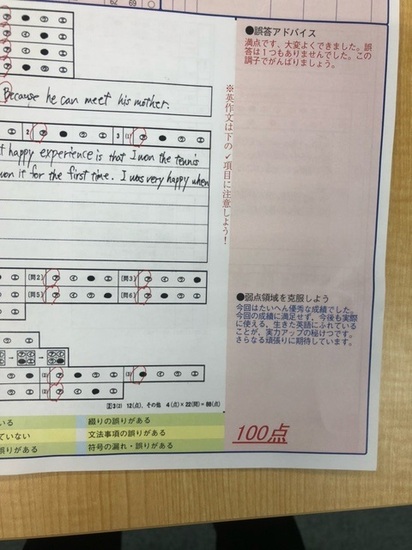 62 69
●誤答アドバイス
満点です、大変よくできました。誤
答は1つもありませんでした。この
調子でがんばりましょう。
Because he can meet his mother.
※英作文は下の✓項目に注意しよう!
t happy experience is that I won the tennis
won it for the first time. I was very happy when
(問2) (問3)
(問5) (問6)
●弱点領域を克服しよう
今回はたいへん優秀な成績でした。
今回の成績に満足せず、今後も実際
に使える、生きた英語にふれている
ことが、実力アップの秘けつです。
さらなる頑張りに期待しています。
3(2) 12(点)、その他 4(点)×22(問)=88(点)
いる 綴りの誤りがある
ていない 文法事項の誤りがある
誤りがある 符号の漏れ・誤りがある
100点